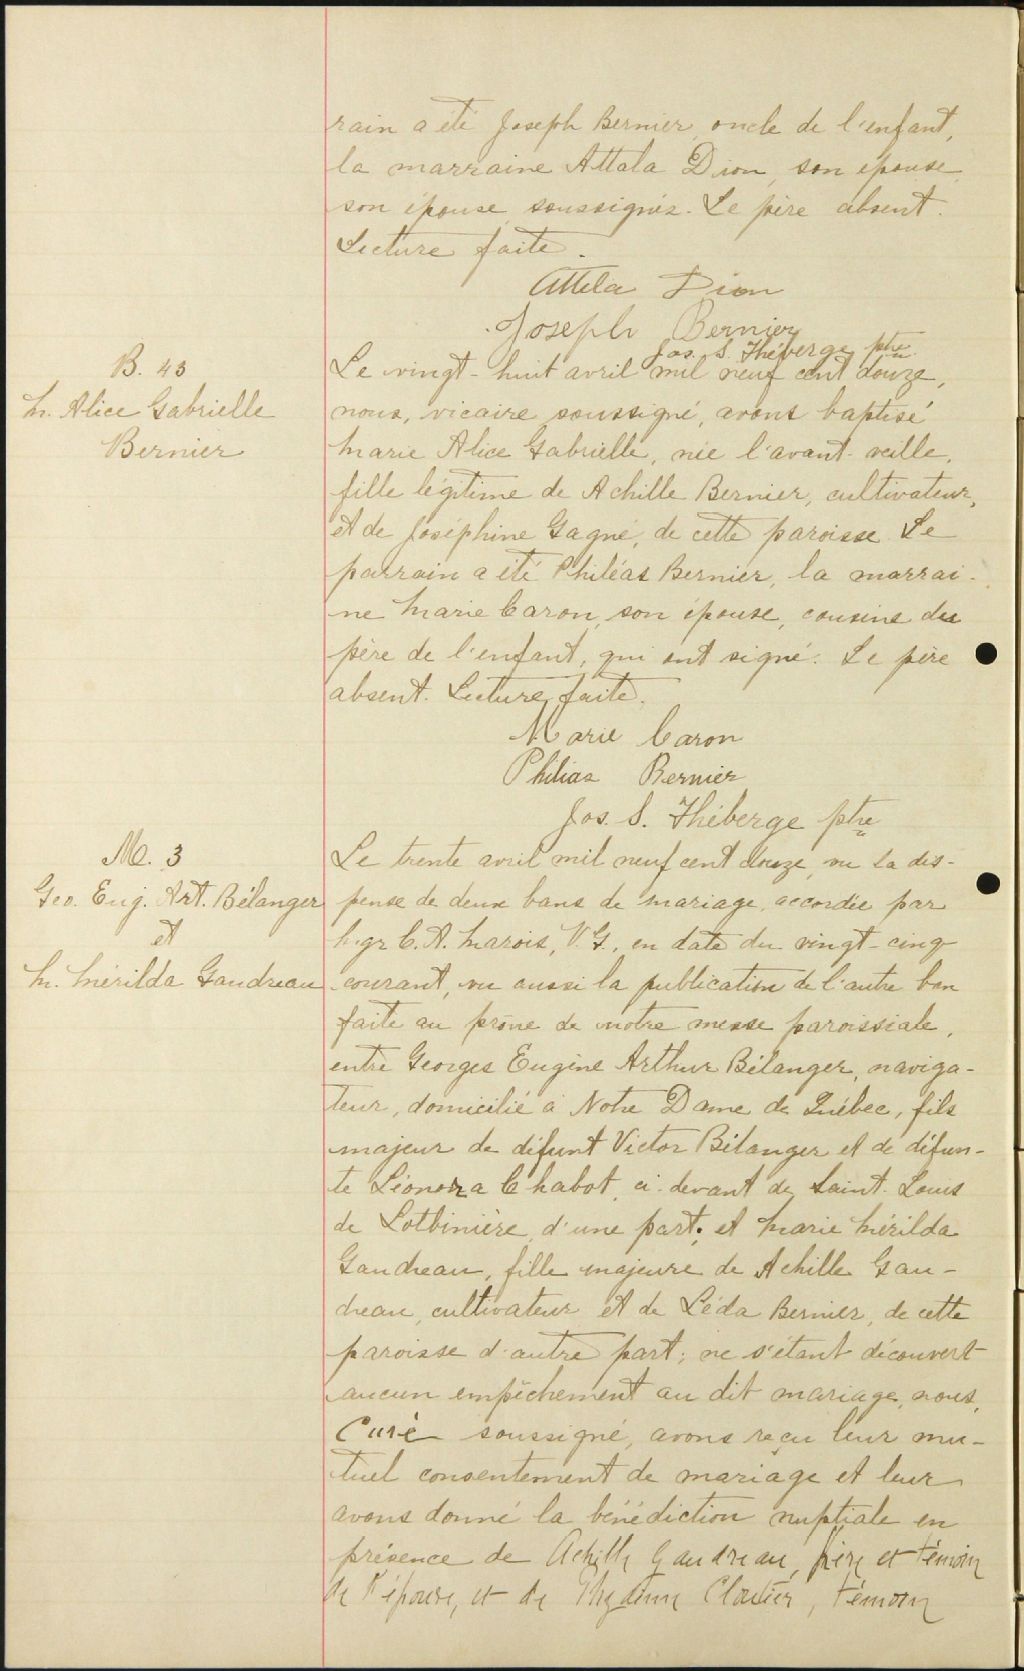 rain a été Joseph Bernier, oncle de l'enfant,
la marraine Attala Dion, son épouse,
son épouse, soussignés. Le père absent.
Lecture faite.
Attela Dion
Joseph Bernier
Jos. S. Théberge ptre
B. 43
M. Alice Gabrielle
Bernier
Le vingt-huit avril mil neuf cent douze,
nous, vicaire soussigné, avons baptisé
Marie Alice Gabrielle, née l'avant-veille,
fille légitime de Achille Bernier, cultivateur,
et de Joséphine Gagné, de cette paroisse. Le
parrain a été Philéas Bernier, la marrai-
ne Marie Caron, son épouse, cousins du
père de l'enfant, qui ont signé. Le père
absent. Lecture faite.
Marie Caron
Philias Bernier
Jos. S. Théberge ptre
M. 3
Geo. Eug. Art. Bélanger
et
M. Mérilda Gaudreau
Le trente avril mil neuf cent douze, vu la dis-
pense de deux bans de mariage accordée par
Mgr C. A. Marois, V. G., en date du vingt-cinq
courant, vu aussi la publication de l'autre ban
faite au prône de notre messe paroissiale,
entre Georges Eugène Arthur Bélanger, naviga-
teur, domicilié à Notre Dame de Québec, fils
majeur de défunt Victor Bélanger et de défun-
te Léonora Chabot, ci-devant de Saint-Louis
de Lotbinière, d'une part; et Marie Mérilda
Gaudreau, fille majeure de Achille Gau-
dreau, cultivateur et de Léda Bernier, de cette
paroisse d'autre part; ne s'étant découvert
aucun empêchement au dit mariage, nous,
Curé soussigné, avons reçu leur mu-
tuel consentement de mariage et leur
avons donné la bénédiction nuptiale en
présence de Achille Gaudreau, père et témoin
de l'épouse, et de Cloutier, témoin